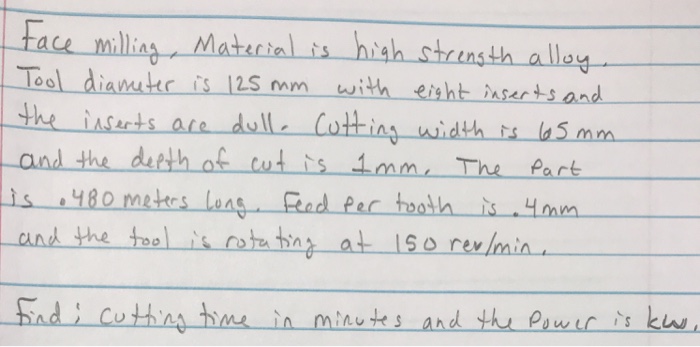 Face milling, Material is high strength alloy.
Tool diameter is 125 mm with eight inserts and
the inserts are dull. Cutting width is 65 mm
and the depth of cut is 1mm. The Part
is .480 meters long. Feed per tooth is .4mm
and the tool is rotating at 150 rev/min.
Find; cutting time in minutes and the Power is kw.